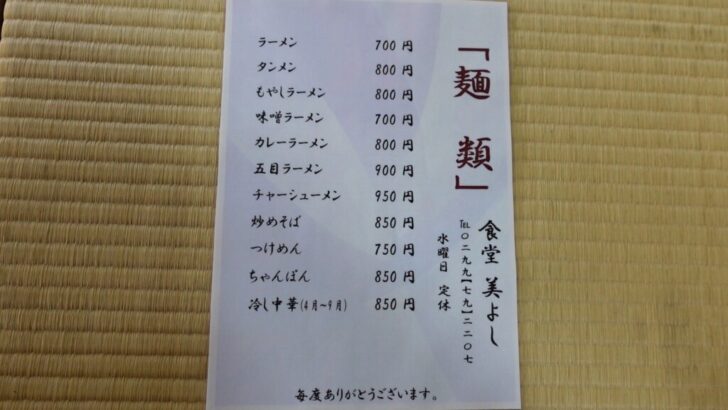 「麺類」
食堂 美よし
TEL〇二九九【七九】二二〇七
水曜日 定休
ラーメン 700 円
タンメン 800 円
もやしラーメン 800 円
味噌ラーメン 700 円
カレーラーメン 800 円
五目ラーメン 900 円
チャーシューメン 950 円
炒めそば 850 円
つけめん 750 円
ちゃんぽん 850 円
冷し中華(4月～9月) 850 円
毎度ありがとうございます。